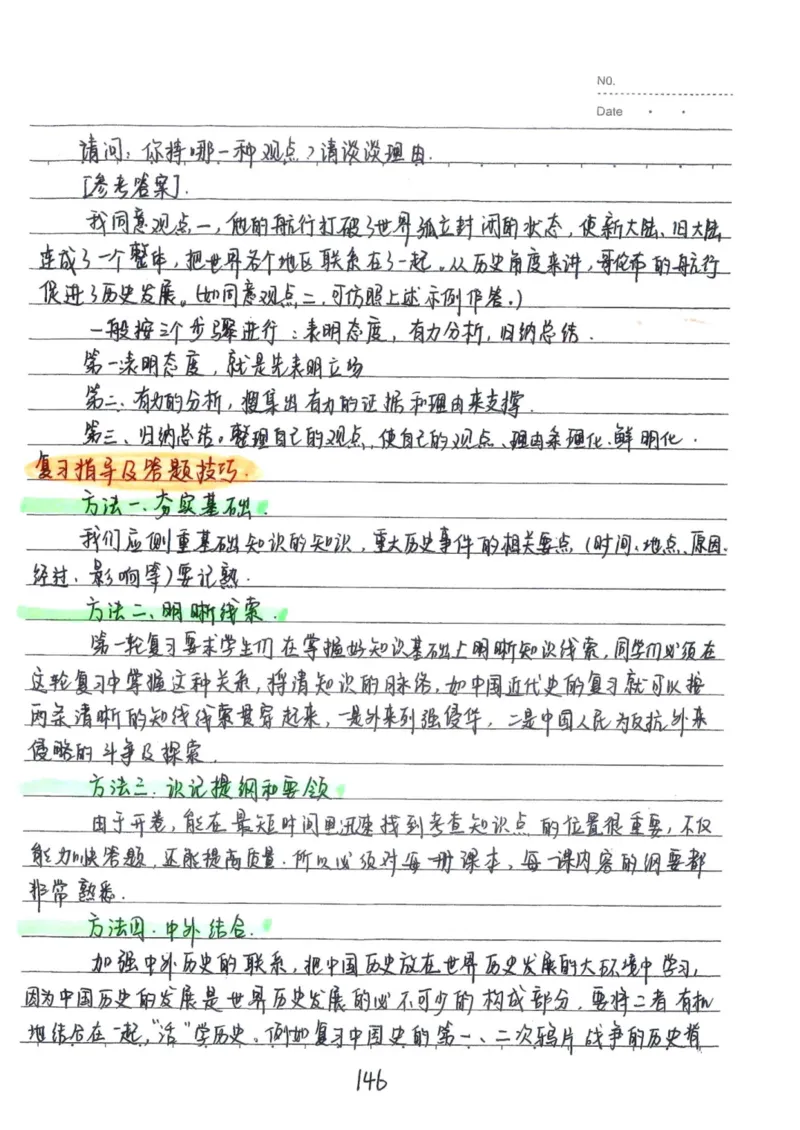 NO.
Date
请问：你持哪一种观点？请谈谈理由.
[参考答案].
我同意观点一，他的航行打破了世界孤立封闭的状态，使新大陆、旧大陆
连成了一个整体，把世界各个地区联系在了一起。从历史角度来讲，哥伦布的航行
促进了历史发展。(如同意观点二，可仿照上述示例作答。)
一般按三个步骤进行：表明态度，有力分析，归纳总结.
第一、表明态度，就是先表明立场
第二、有力的分析，搜集出有力的证据和理由来支撑.
第三、归纳总结。整理自己的观点、使自己的观点、理由条理化、鲜明化.
复习指导及答题技巧.
方法一、夯实基础.
我们应侧重基础知识的知识，重大历史事件的相关要点（时间、地点、原因、
经过、影响等）要记熟.
方法二、明晰线索.
第一轮复习要求学生们在掌握好知识基础上明晰知识线索，同学们必须在
这轮复习中掌握这种关系，捋清知识的脉络，如中国近代史的复习就可以按
两条清晰的知线线索贯穿起来，一是外来列强侵华，二是中国人民为反抗外来
侵略的斗争及探索.
方法三、识记提纲和要领.
由于开卷，能在最短时间里迅速找到考查知识点的位置很重要，不仅
能加快答题，还能提高质量.所以必须对每一册课本，每一课内容的纲要都
非常熟悉.
方法四.中外结合.
加强中外历史的联系，把中国历史放在世界历史发展的大环境中学习，
因为中国历史的发展是世界历史发展的必不可少的构成部分，要将二者有机
地结合在一起，"活"学历史。例如复习中国史的第一、二次鸦片战争的历史背
146